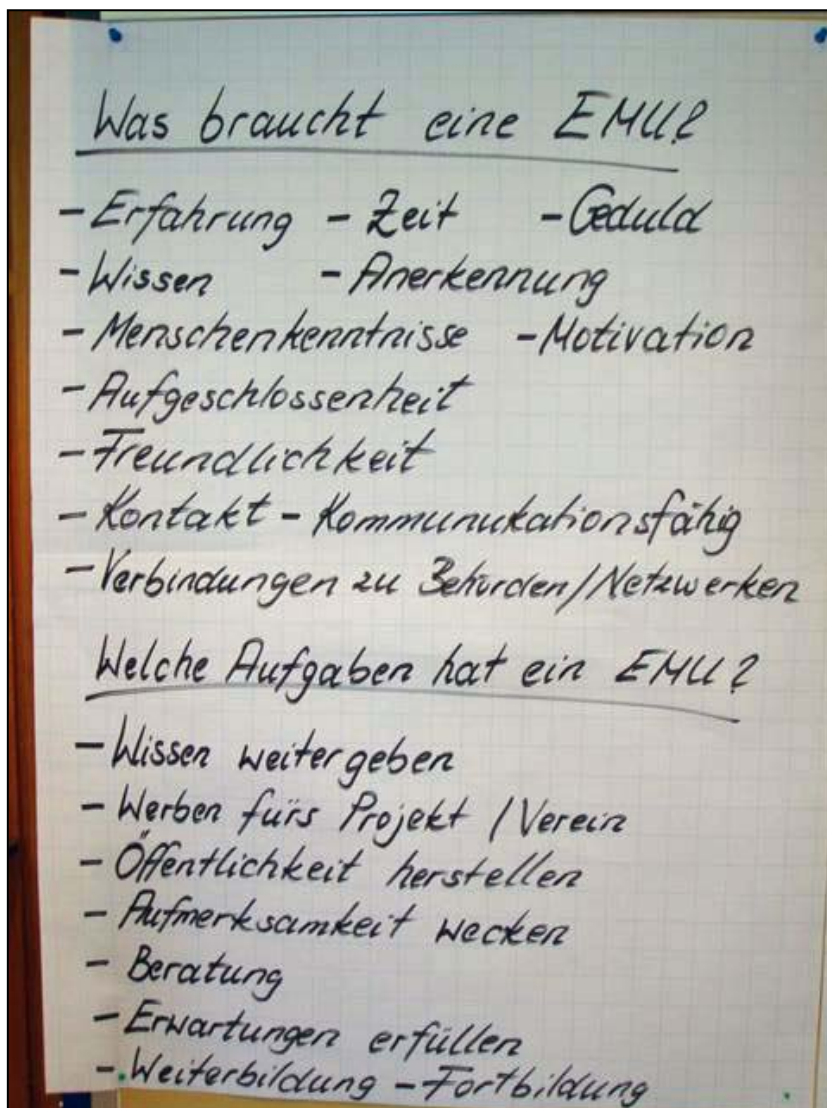 Was braucht eine EMU?
- Erfahrung - Zeit - Geduld
- Wissen - Anerkennung
- Menschenkenntnisse - Motivation
- Aufgeschlossenheit
- Freundlichkeit
- Kontakt - Kommunukationsfähig
- Verbindungen zu Behörden/Netzwerken
Welche Aufgaben hat ein EMU?
- Wissen weitergeben
- Werben fürs Projekt / Verein
- Öffentlichkeit herstellen
- Aufmerksamkeit wecken
- Beratung
- Erwartungen erfüllen
- Weiterbildung - Fortbildung